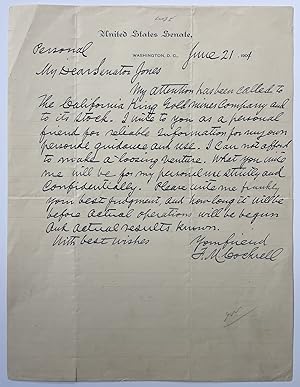 United States Senate,
WASHINGTON, D. C., June 21, 1901
Personal
My Dear Senator Jones
My attention has been called to
the California King Gold Mines Company and
to its Stock. I write to you as a personal
friend for reliable information for my own
personal guidance and use. I can not afford
to make a loosing venture. What you write
me will be for my personal use strictly and
confidentially. Please write me frankly
your best judgment, and how long it will be
before actual operations will be begun
and actual results known.
With best wishes
Your friend
F. M. Cockrell